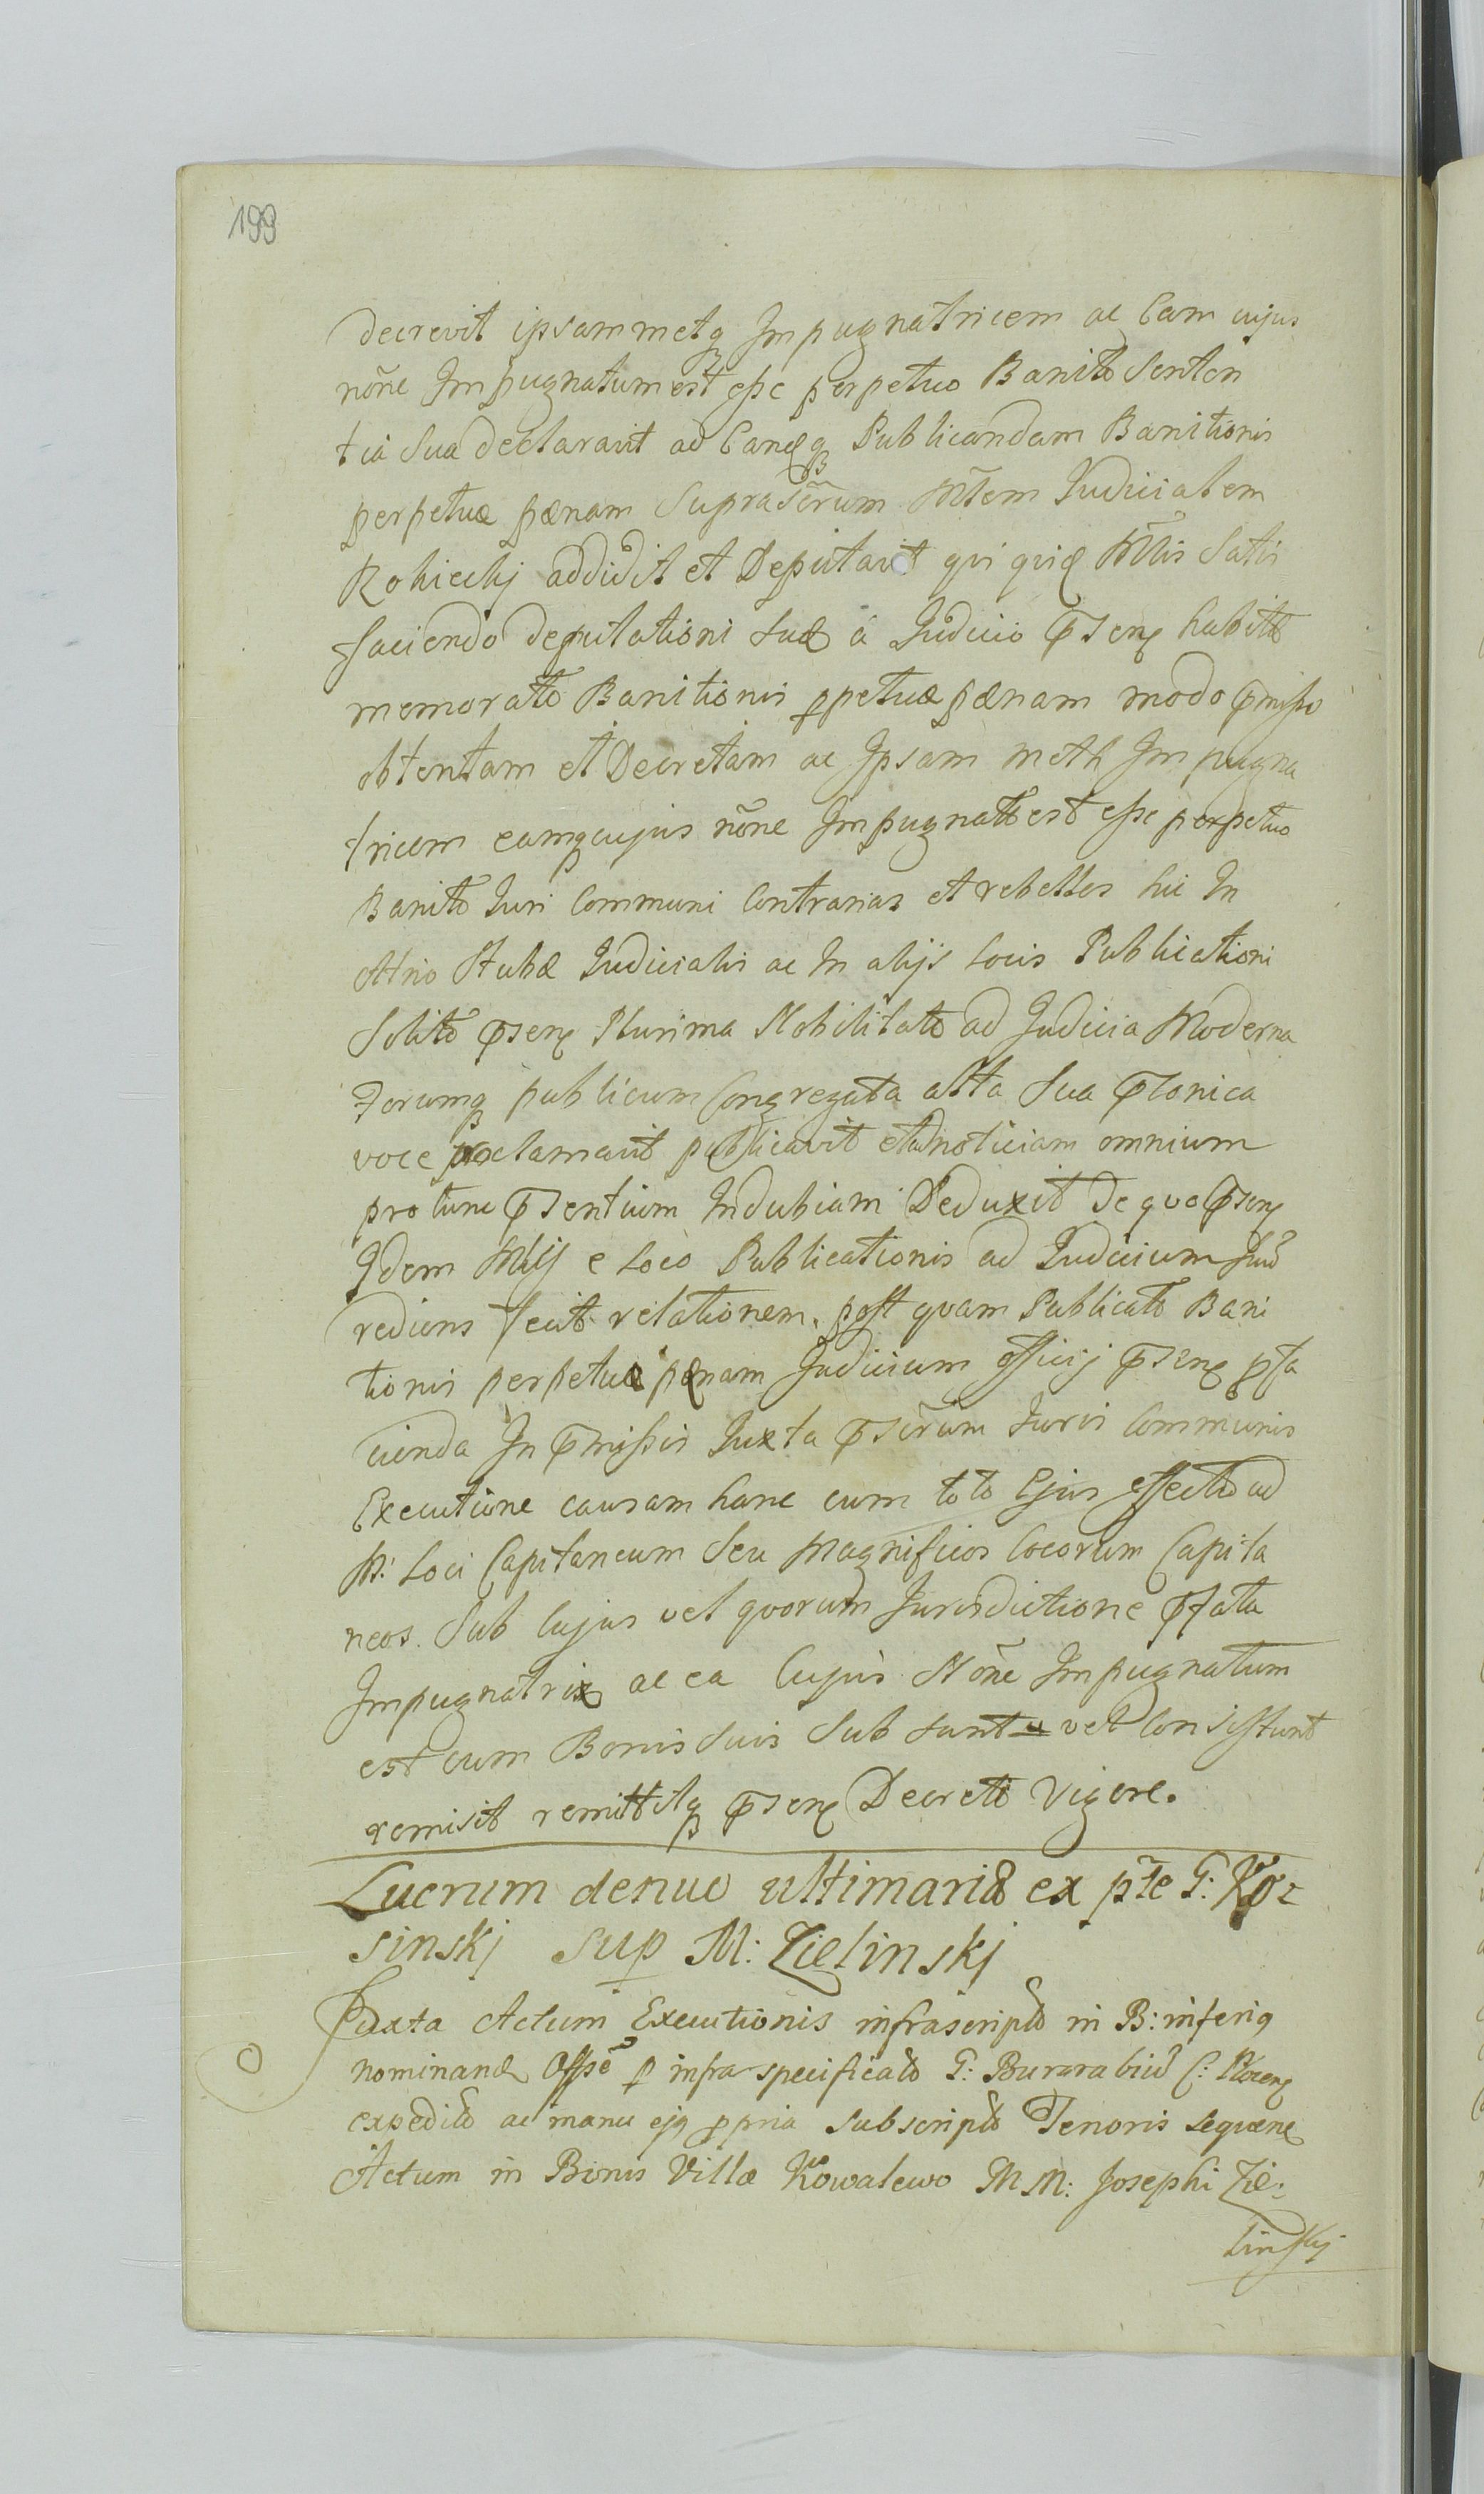 199
decrevit ipsammetq Impugnatricem ac Eam cujus
nõne Impugnatum est esse perpetuo Banitã Senten
tia Sua declaravit ad Eandq Publicandam Banitionis
perpetuæ pænam Suprascrũm Mtem Judicialem
Rohiechj addidit et Deputavit qui quid Mtlis Satis
faciendo deputationi suæ à Judicio pnsens habitã
memoratã Banitionis ppetuæ pænam modo pmisso
obtentam et Decretam ac Ipsam meth Impugna
tricem eamq cujus nõne Impugnatũ est esse perpetuo
Banitã Juri Communi Contrarias et rebelles hic In
Atrio Stubæ Judicialis ac In alijs Locis Publicationi
Solitis psens Plurima Nobilitatẽ ad Judicia Moderna
Forumq publicum Congregata alta Sua ptonica
voce proclamavit publicavit et ad noticiam omnium
pro tunc psentium Indubiam Deduxit De quo psens
Idem Mtlij e Loco Publicationis ad Judicium suũ
rediens fecit relationem, post quam Publicatã Bani
tionis perpetuæ pænam Judicium officij psens pfa
cienda In pmissis Juxta pscrũm Juris Communis
Executione causam hanc cum toto Ejus effectu ad
M: Loci Capitaneum Seu Magnificos Locorum Capita
neos. Sub Cujus vel quorum Jurisdictione pfata
Impugnatrix ac ea Cujus Nõne Impugnatum
est cum Bonis Suis Sub sunt vel Consistunt
remisit remittitq psens Decreti Vigore.
Lucrum denuo ultimariã ex pte G: Ko=
sinskj sup M: Zielinskj
Juxta Actum Executionis infrascriptũ in B: inferiq
nominand Offsẽ p infra specificatũ G: Burgrabiũ C: Plocens
expeditũ ac manu ejq ppria subscriptũ Tenoris sequens
Actum in Bonis Villæ Kowalewo M M: Josephi Zie:
linskj